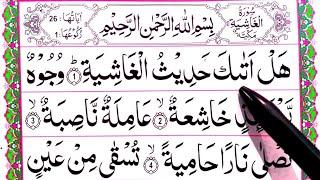 سُورَةُ الْغَاشِيَةِ مَكِّيَّةٌ
بِسْمِ اللهِ الرَّحْمٰنِ الرَّحِيْمِ
اٰيَاتُهَا: 26
رُكُوْعُهَا: 1
هَلْ اَتٰىكَ حَدِيْثُ الْغَاشِيَةِ ۝1 وُجُوْهٌ
خَاشِعَةٌ ۝2 عَامِلَةٌ نَّاصِبَةٌ ۝3
تَصْلٰى نَارًا حَامِيَةً ۝4 تُسْقٰى مِنْ عَيْنٍ